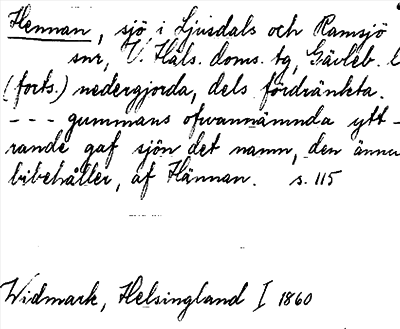 Hennan, sjö i Ljusdals och Ramsjö
snr, V. Häls. doms. tg, Gävleb. l
(forts.) nedergjorda, dels fördränkta.
--- gummans ofvannämnda ytt-
rande gaf sjön det namn, den ännu
bibehåller, af Hännan. s. 115
Widmark, Helsingland I 1860